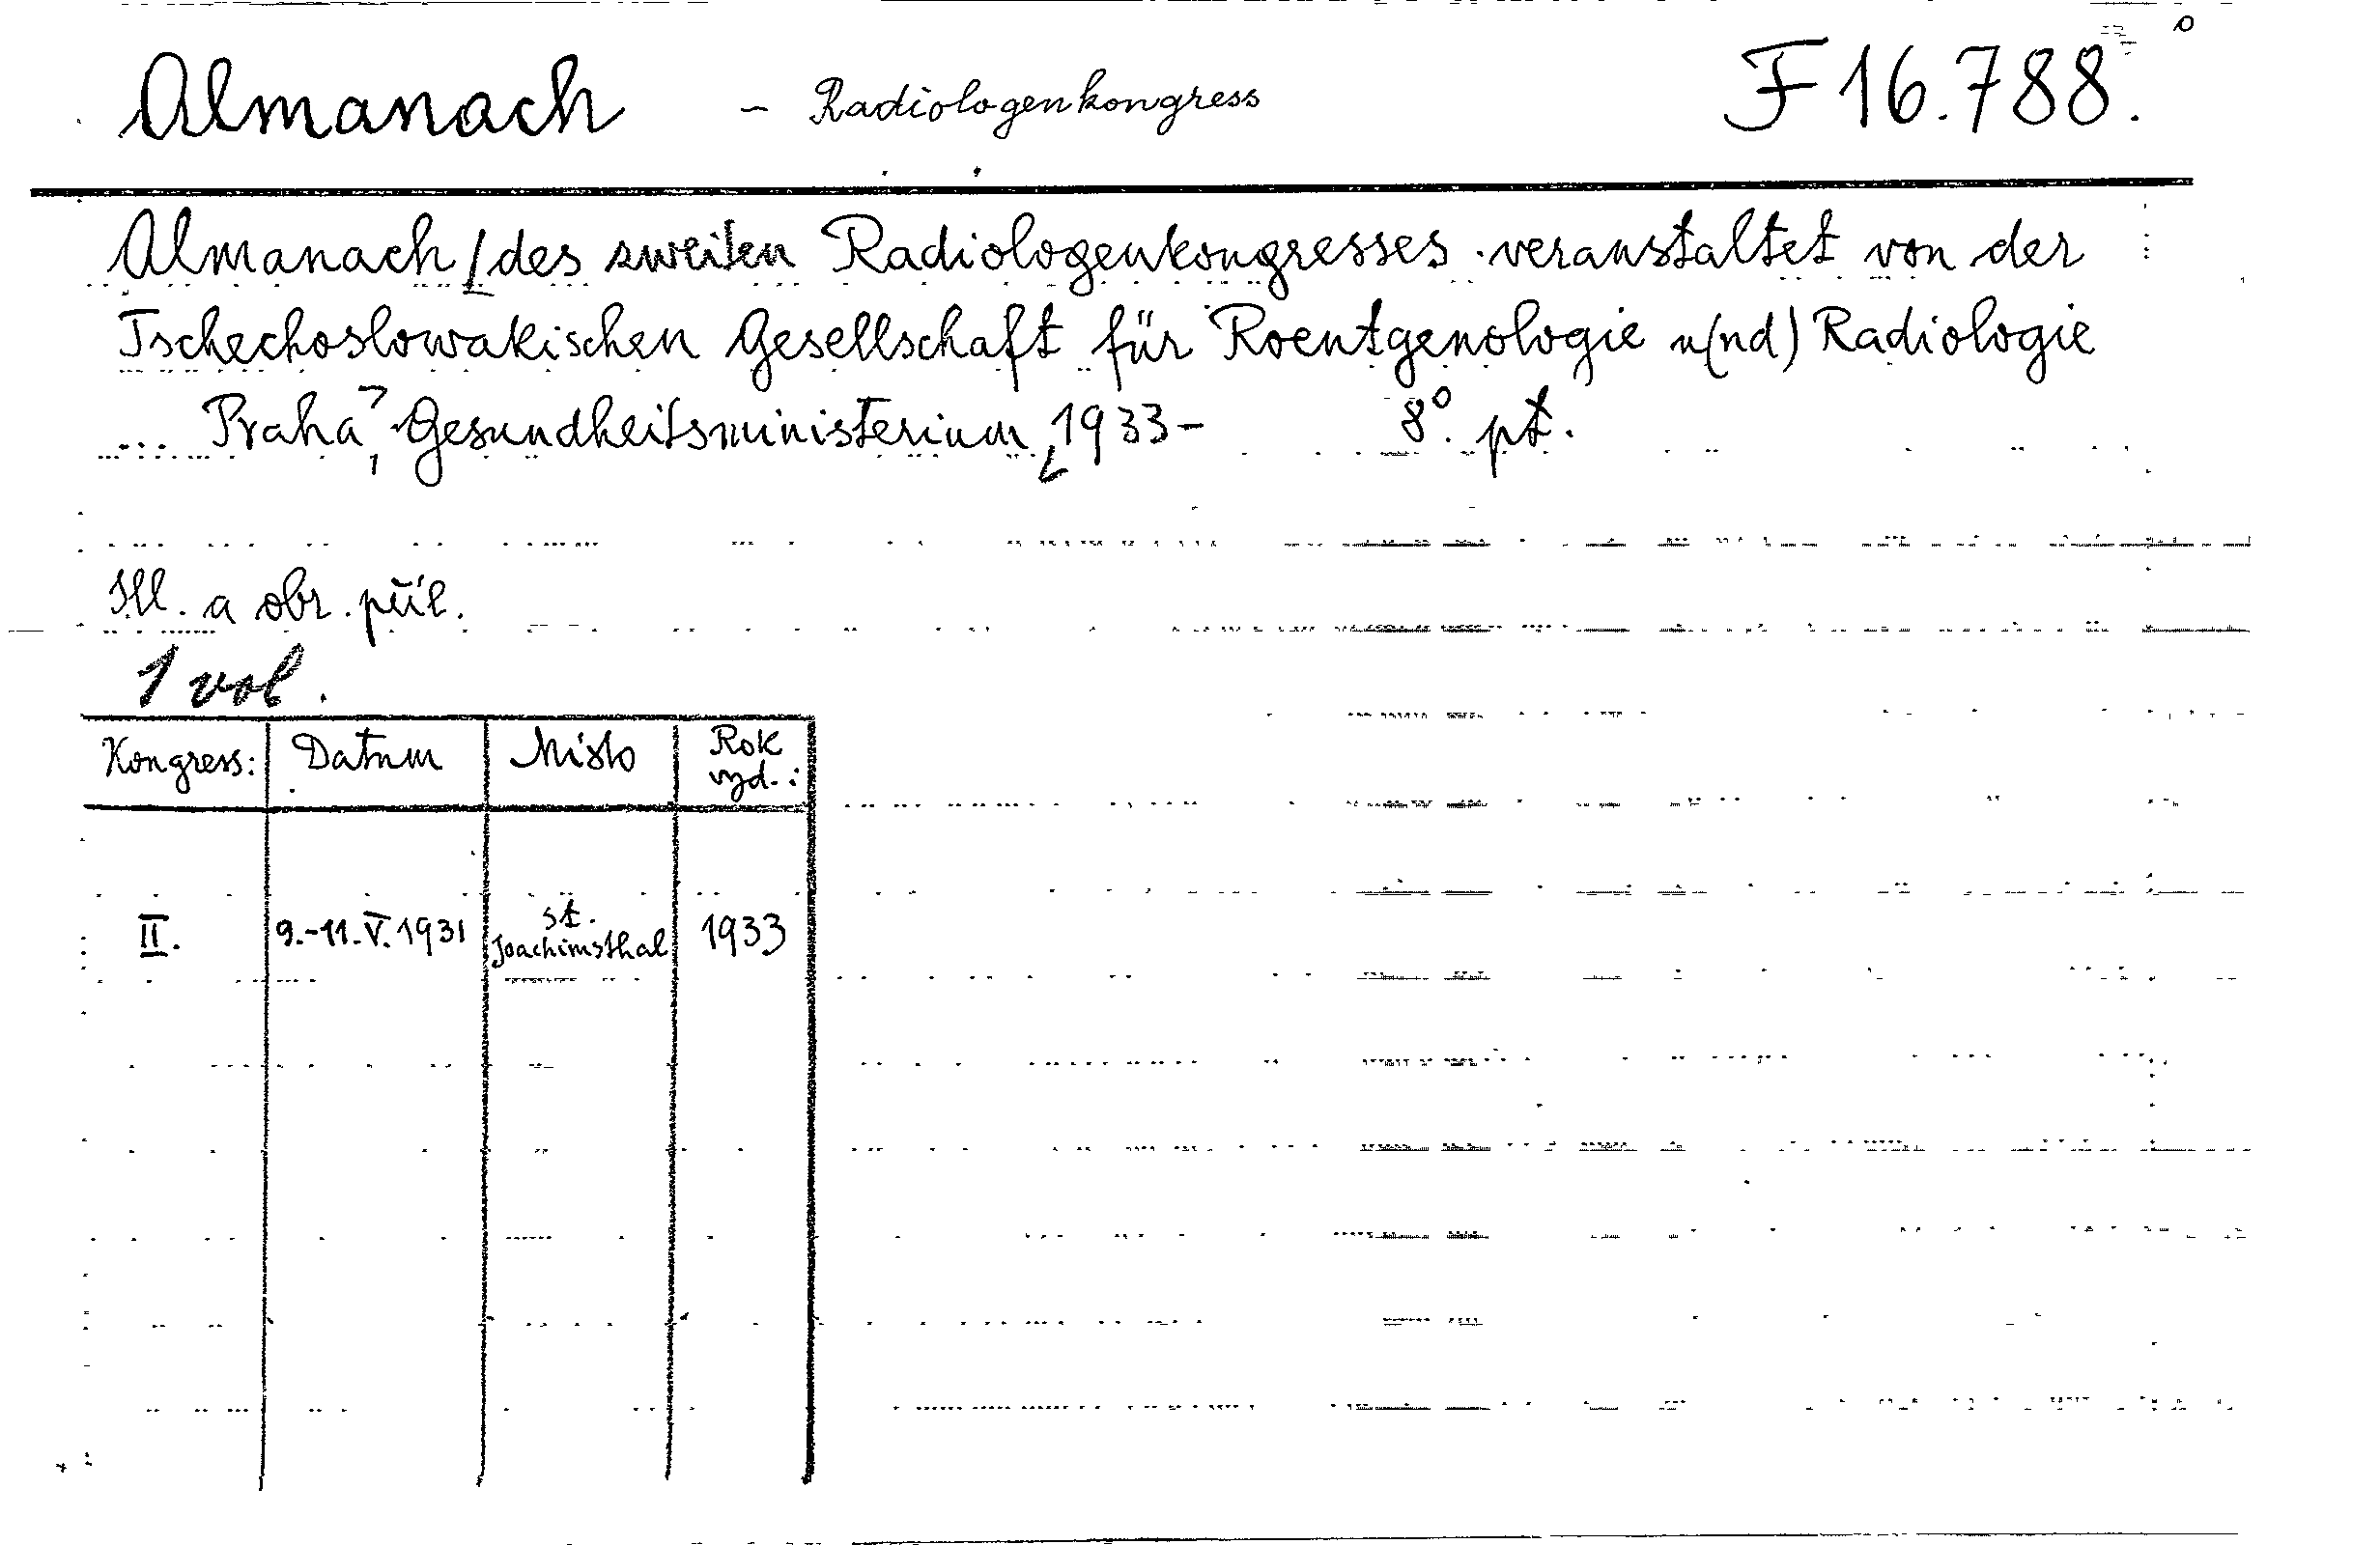 Almanach - Radiologenkongress F 16.788.
Almanach [des zweiten Radiologenkongresses veranstaltet von der
Tschechoslowakischen Gesellschaft für Roentgenologie u(nd) Radiologie
... Praha, Gesundheitsministerium, 1933- 8°. pt.
Ill. a obr. příl.
1 vol.
Kongress: Datum Místo Rok vyd.:
II. 9.-11.V.1931 St. Joachimsthal 1933